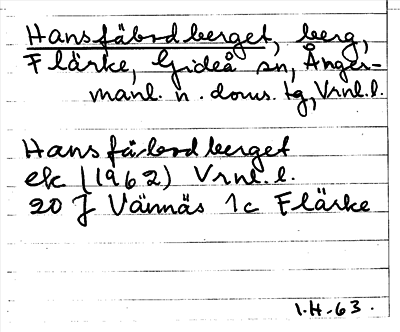 Hansfäbodberget, berg,
Flärke, Gideå sn, Ånger-
manl. n. doms. tg, Vrnl. l.
Hansfäbodberget
ek (1962) Vrnl. l.
20 J Vännäs 1c Flärke
I.H.-63.